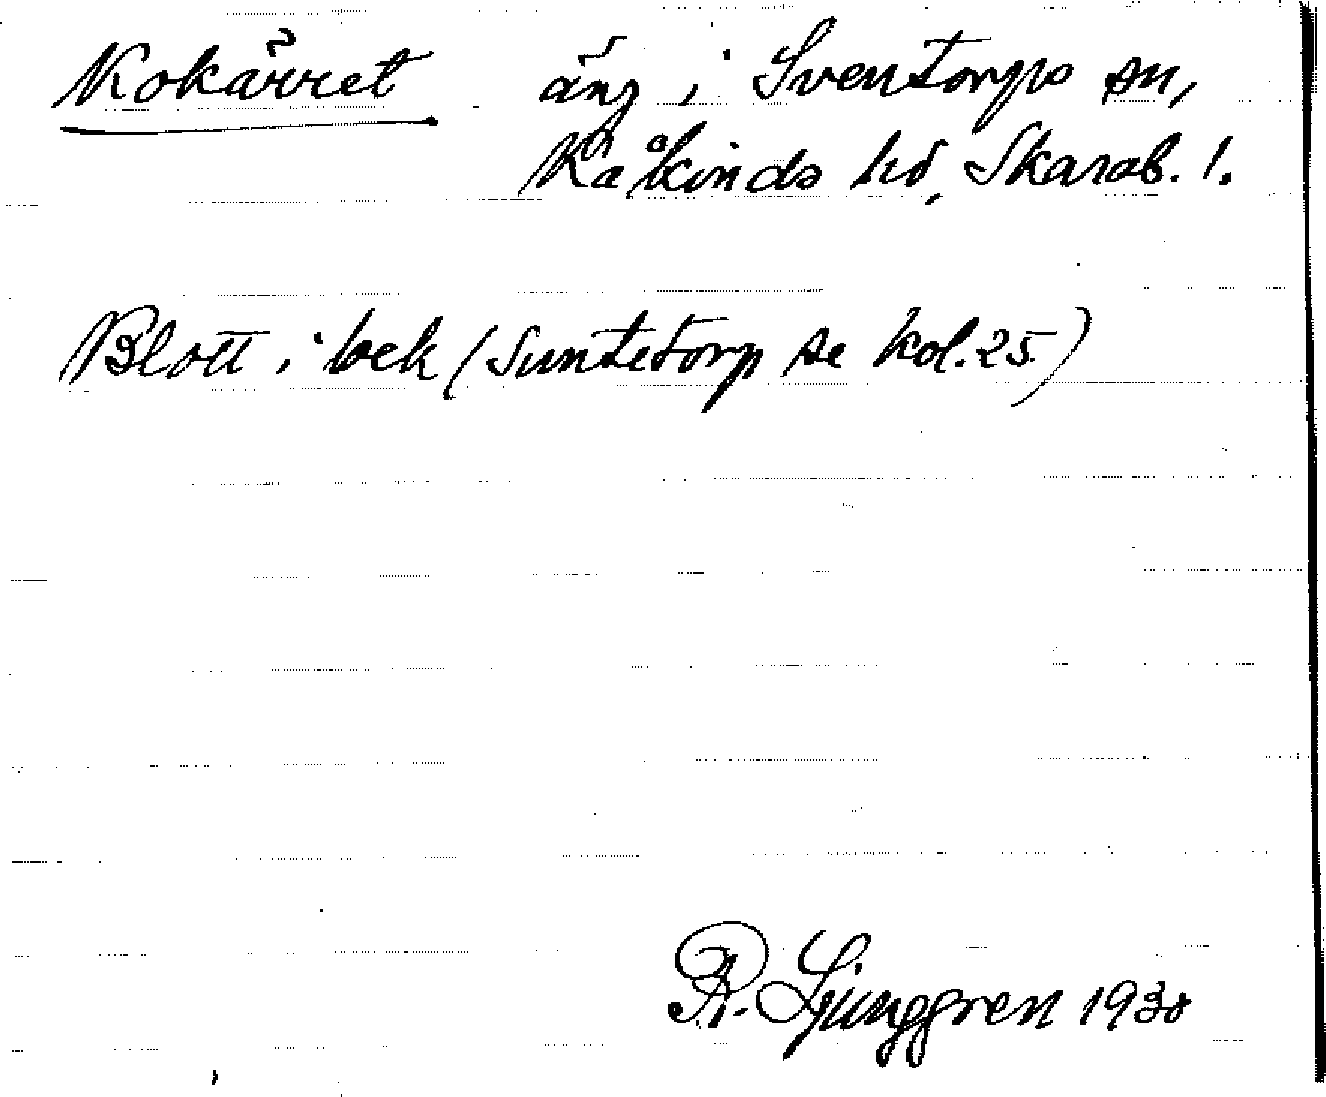 Kokärret äng i Sventorps sn,
Kåkinds hd, Skarab. l.
Blott i bek (Suntetorp se kol. 25)
R. Ljunggren 1930